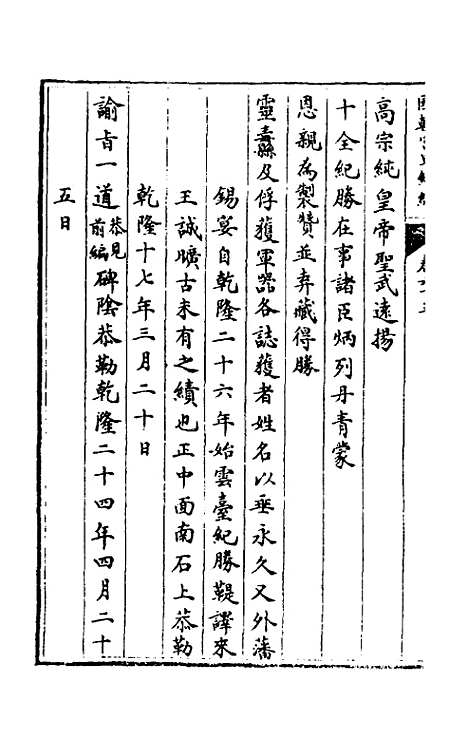 高宗純皇帝聖武遠揚
十全紀勝在事諸臣炳列丹青蒙
恩親為製贊並弆藏得勝
靈纛及俘獲軍器各誌獲者姓名以垂永久又外藩
錫宴自乾隆二十六年始雲臺紀勝鞮譯來
王誠曠古未有之績也正中面南石上恭勒
乾隆十七年三月二十日
諭旨一道恭見前編碑陰恭勒乾隆二十四年四月二十
五日